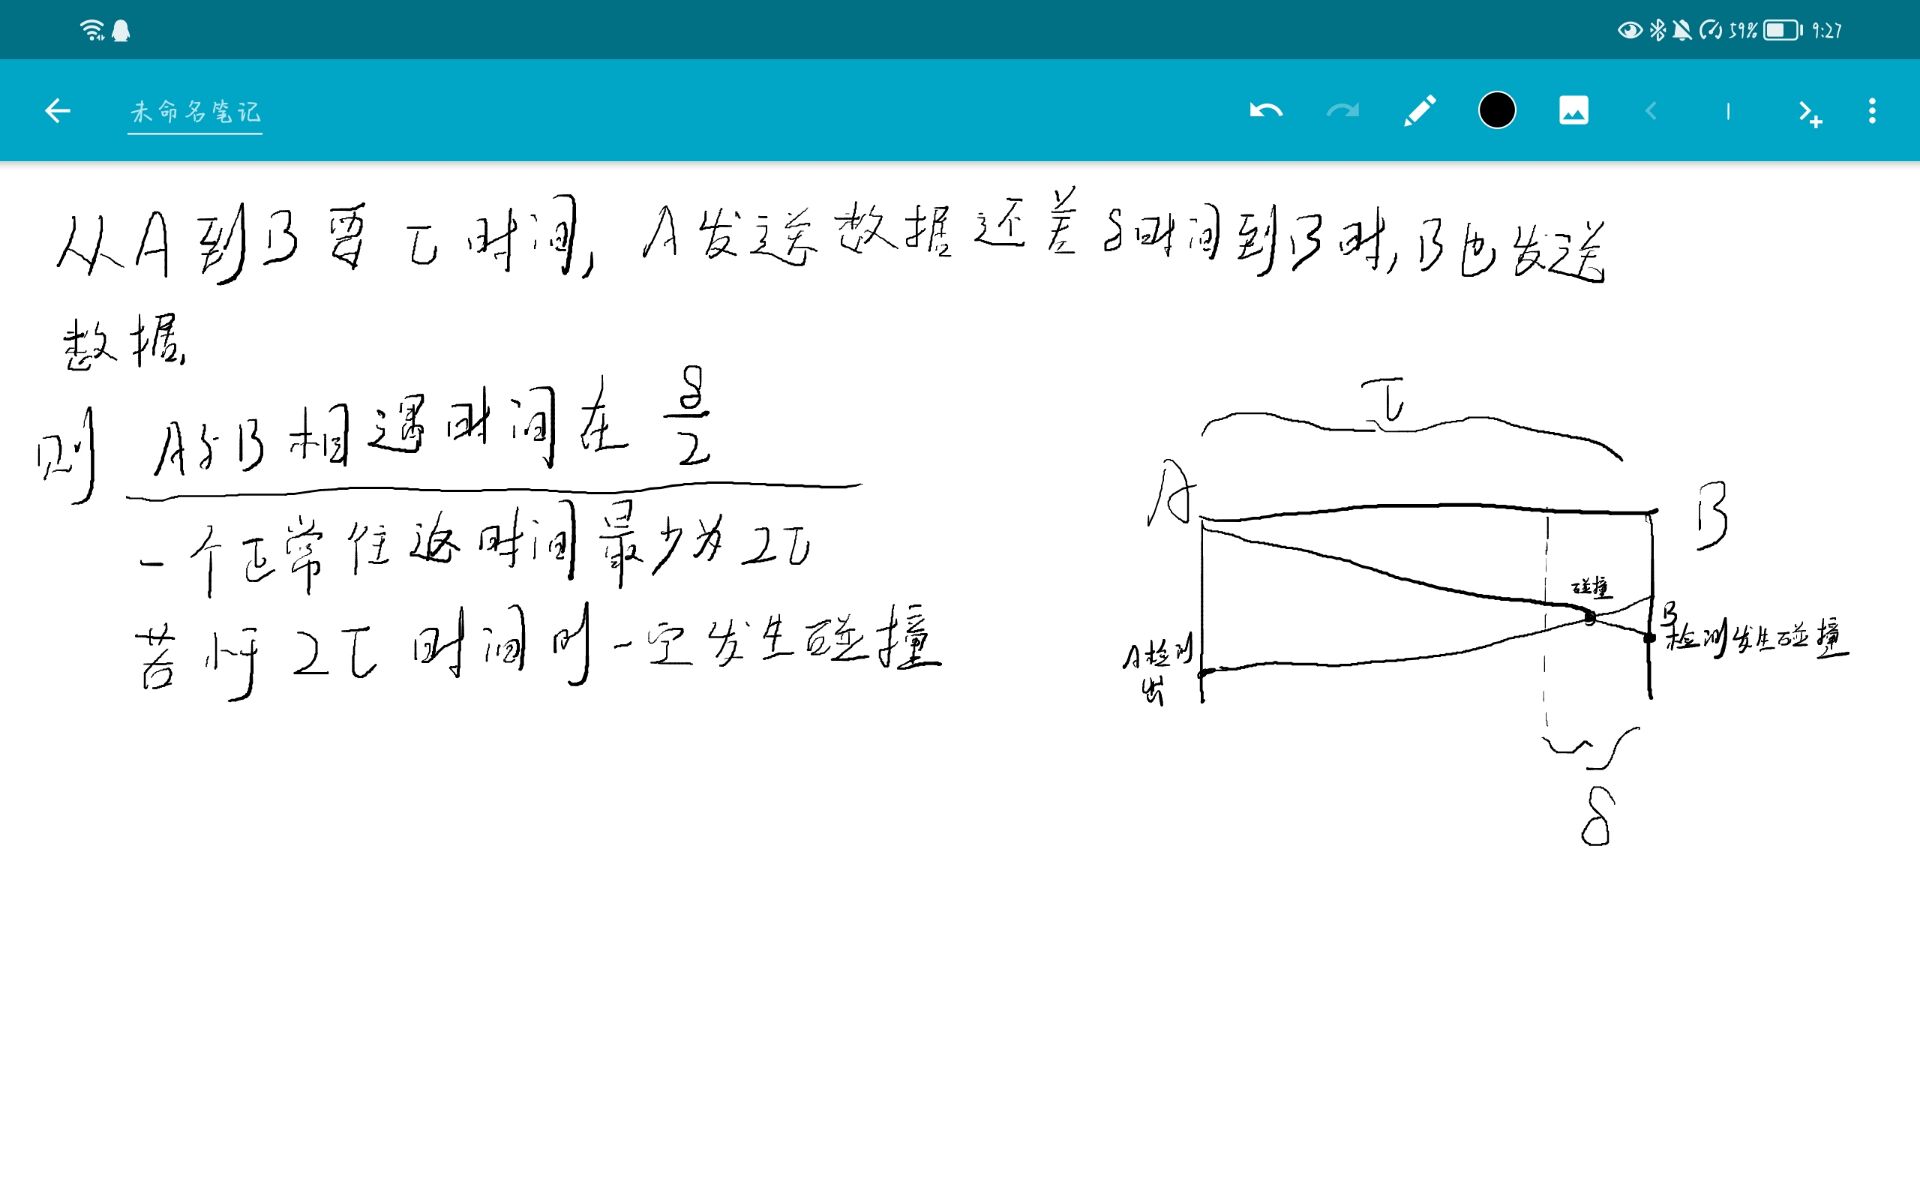 59% 9:27
未命名笔记
从A到B要τ时间,A发送数据还差δ时间到B时,B也发送
数据,
则 A与B相遇时间在 δ/2
一个正常往返时间最少为2τ
若小于2τ时间则一定发生碰撞
τ
A
B
碰撞
B
检测发生碰撞
A检测
出
δ